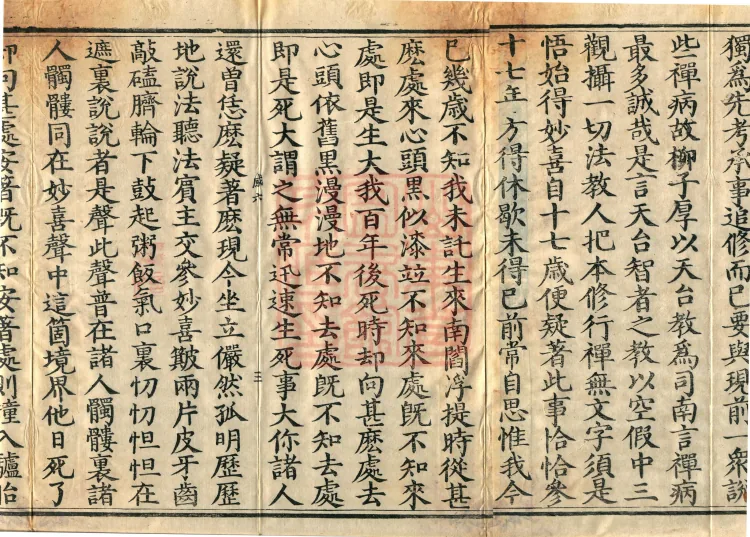 獨爲先考承事追修而已要與現前一衆說
些禪病故柳子厚以天台教爲司南言禪病
最多誠哉是言天台智者之教以空假中三
觀攝一切法教人把本修行禪無文字須是
悟始得妙喜自十七歲便疑著此事恰恰參
十七年方得休歇未得已前常自思惟我今
已幾歲不知我未託生來南閻浮提時從甚
麽處來心頭黑似漆竝不知來處旣不知來
處即是生大我百年後死時却向甚麽處去
心頭依舊黑漫漫地不知去處旣不知去處
即是死大謂之無常迅速生死事大你諸人
咸六 三
還曾恁麽疑著麽現今坐立儼然孤明歷歷
地說法聽法賓主交參妙喜皺兩片皮牙齒
敲磕臍輪下鼓起粥飯氣口裏忉忉怛怛在
遮裏說說者是聲此聲普在諸人髑髏裏諸
人髑髏同在妙喜聲中這箇境界他日死了
却向甚處安著旣不知安著處則撞入驢胎